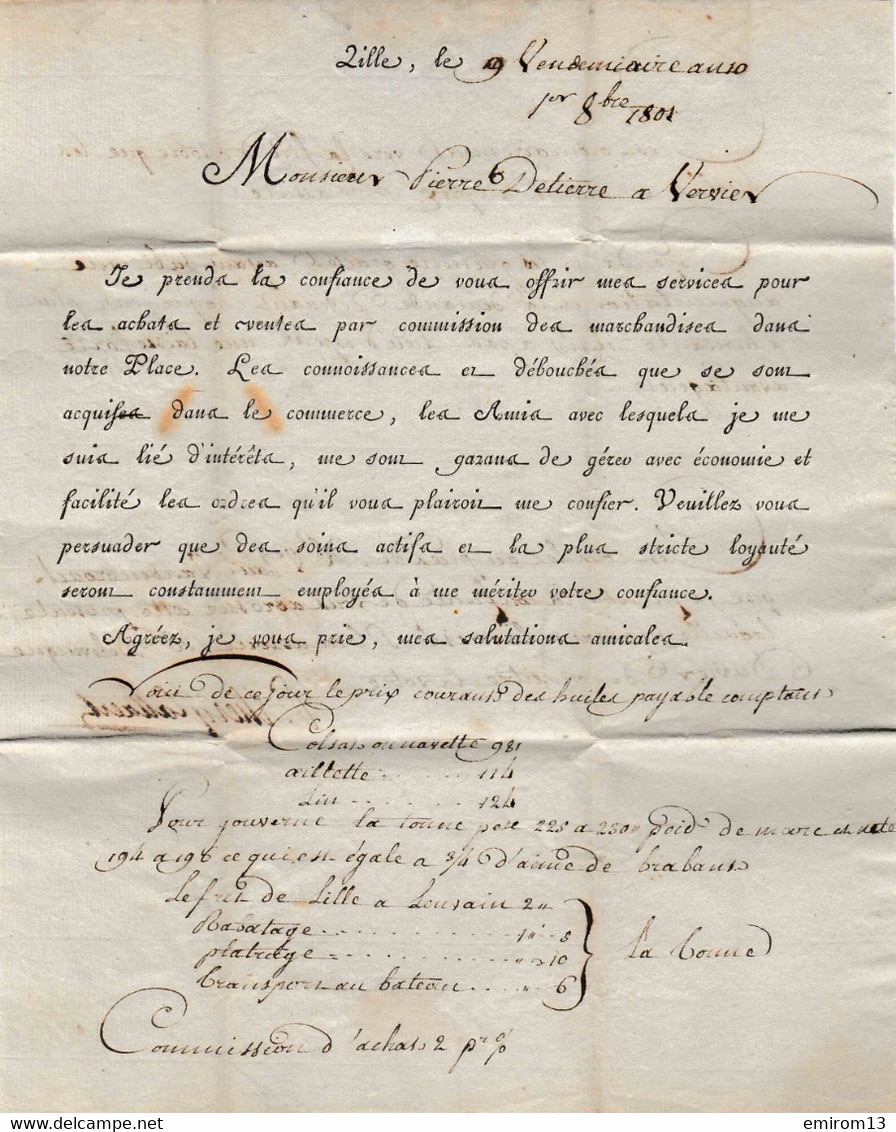 Lille, le 9 Vendemiaire an 10
pr 8bre 1801
Monsieur Pierre Detierre a Vervier
Je prends la confiance de vous offrir mes services pour
les achats et ventes par commission des marchandises dans
notre Place. Les connoissances et débouchés que se sont
acquises dans le commerce, les Amis avec lesquels je me
suis lié d'intérêts, me sont garans de gérer avec économie et
facilité les ordres qu'il vous plairoit me confier. Veuillez vous
persuader que des soins actifs et la plus stricte loyauté
seront constamment employés à me mériter votre confiance.
Agréez, je vous prie, mes salutations amicales.
Voici de ce jour le prix courant des huiles payable comptant
Colsas ou navette 98
aillette ........ 114
Lin ........ 124
Pour gouverne la tonne pese 225 a 230 poid de marc et nete
194 a 196 ce qui est égale a 3/4 d'aime de brabant
Le fret de Lille a Louvain 2 "
Rabatage ........ 1 " 8
platrage ........ " 10
transport au bateau .... " 6
la tonne
Commission d'achat 2 pr %
emirom13